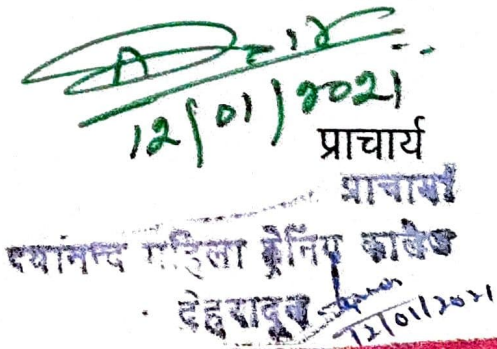 12/01/2021
प्राचार्य
प्राचार्या
दयानन्द महिला ट्रेनिंग कालेज
देहरादून
12/01/2021